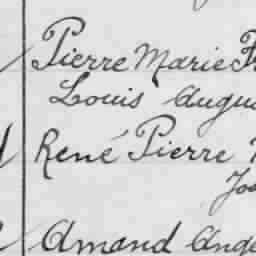 Pierre Marie
Louis Augu
René Pierre
Amand Ange